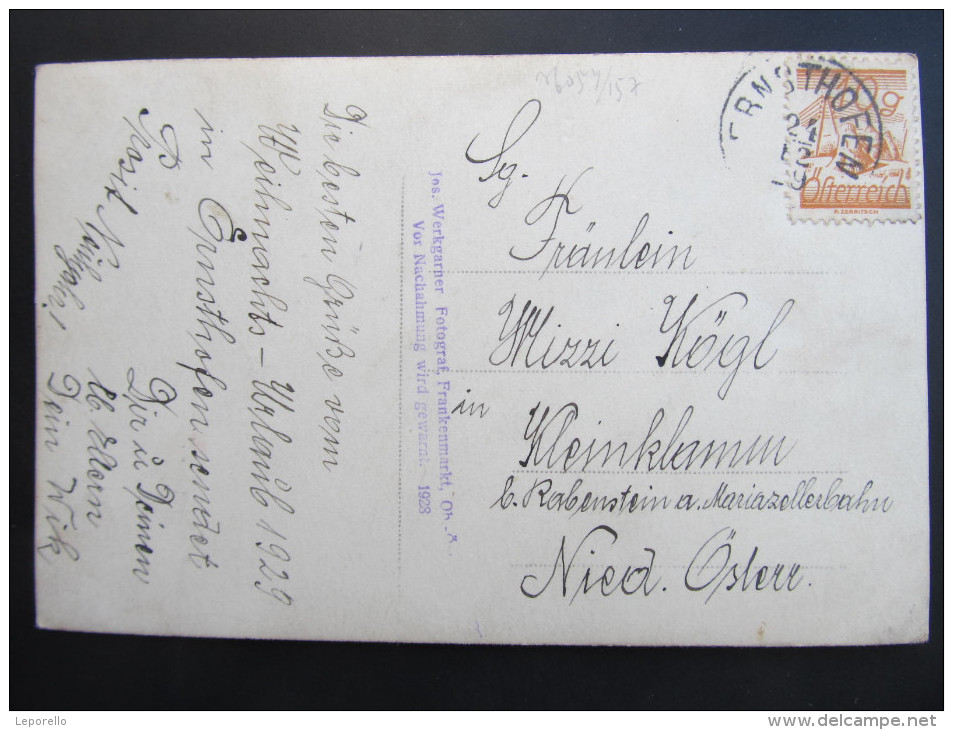 Die besten Grüße vom
Weihnachts-Urlaub 1929
in Ernsthofen sendet
Dir u Deinen
lb. Eltern
Dein Wick
Jos. Werkgarner Fotograf, Frankenmarkt, Ob.-Ö.
Vor Nachahmung wird gewarnt. 1928
ERNSTHOFEN
Österreich
Sg.
Fräulein
Mizzi Kögl
in
Kleinklamm
b. Rabenstein a. Mariazellerbahn
Nied. Österr.
Leporello
www.delcampe.net